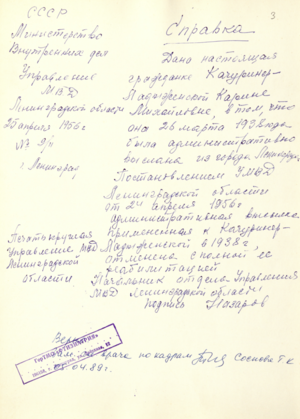 СССР
3
Министерство
Внутренних дел
Управление
МВД
Ленинградской области
25 апреля 1956 г
г. Ленинград
Справка
Дана настоящая
гражданке Качуринер-
Ладыженской Карине
Михайловне, в том, что
она 26 марта 1938 года
была административно
выслана из города Ленинград.
Постановлением УМВД
Ленинградской области
от 24 апреля 1956 г.
административная высылка
примененная к Качуринер-
Ладыженской в 1938 г,
отменена с полной ее
реабилитацией
Начальник отдела Управления
МВД Ленинградской области
подпись Назаров
Печать круглая
Управление МВД
Ленинградской
области
врача по кадрам
04.89 г.